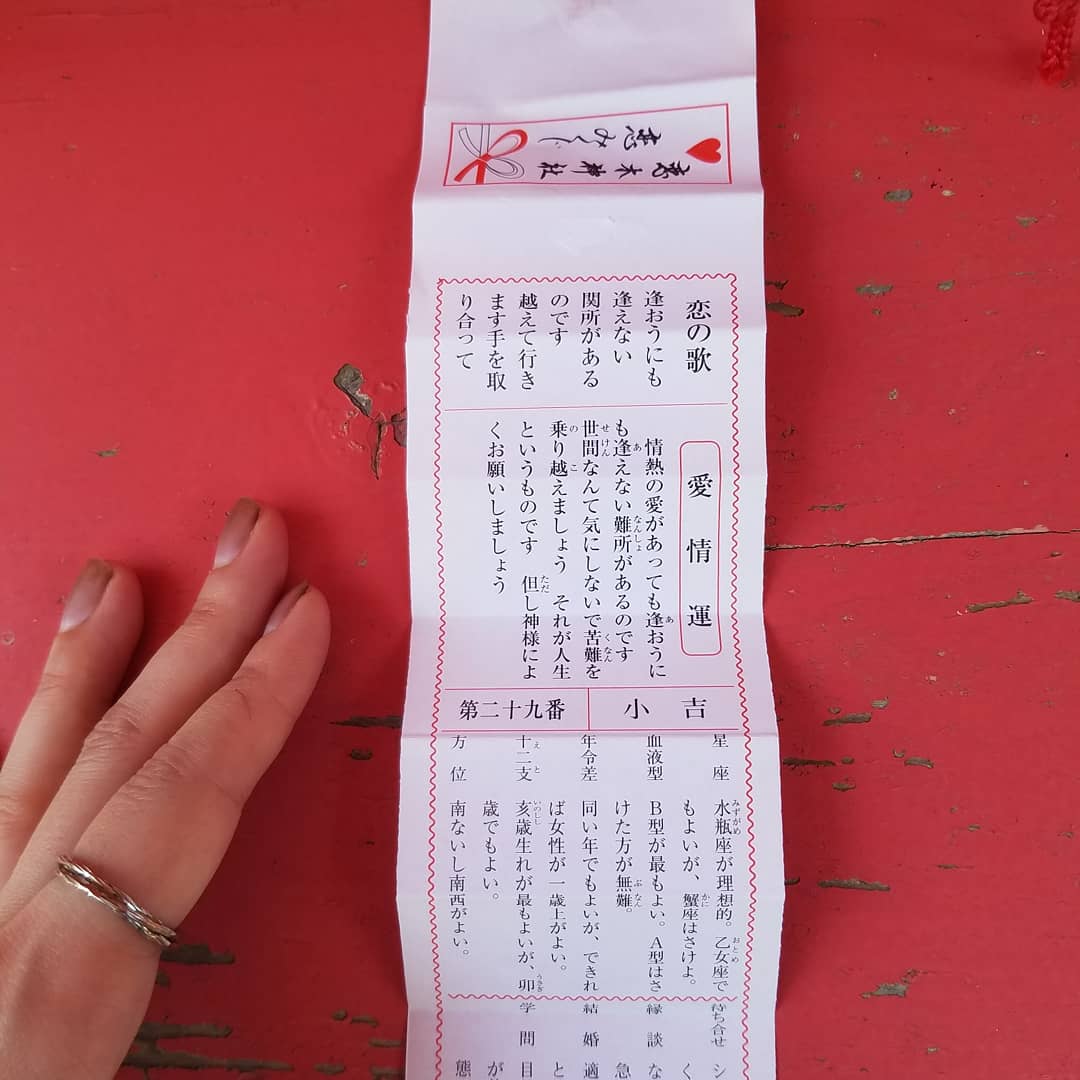 恋みくじ
神社
恋の歌
逢おうにも
逢えない
関所がある
のです
越えて行き
ます手を取
り合って
愛情運
情熱の愛があっても逢おうに
も逢えない難所があるのです
世間なんて気にしないで苦難を
乗り越えましょう それが人生
というものです 但し神様によ
くお願いしましょう
小吉
第二十九番
星座
水瓶座が理想的。乙女座で
もよいが、蟹座はさけよ。
血液型
B型が最もよい。A型はさ
けた方が無難。
年令差
同い年でもよいが、できれ
ば女性が一歳上がよい。
十二支
亥歳生れが最もよいが、卯
歳でもよい。
方位
南ないし南西がよい。
待ち合せ
シ
く
縁談
な
急
結婚
適
と
学問
目
が
態